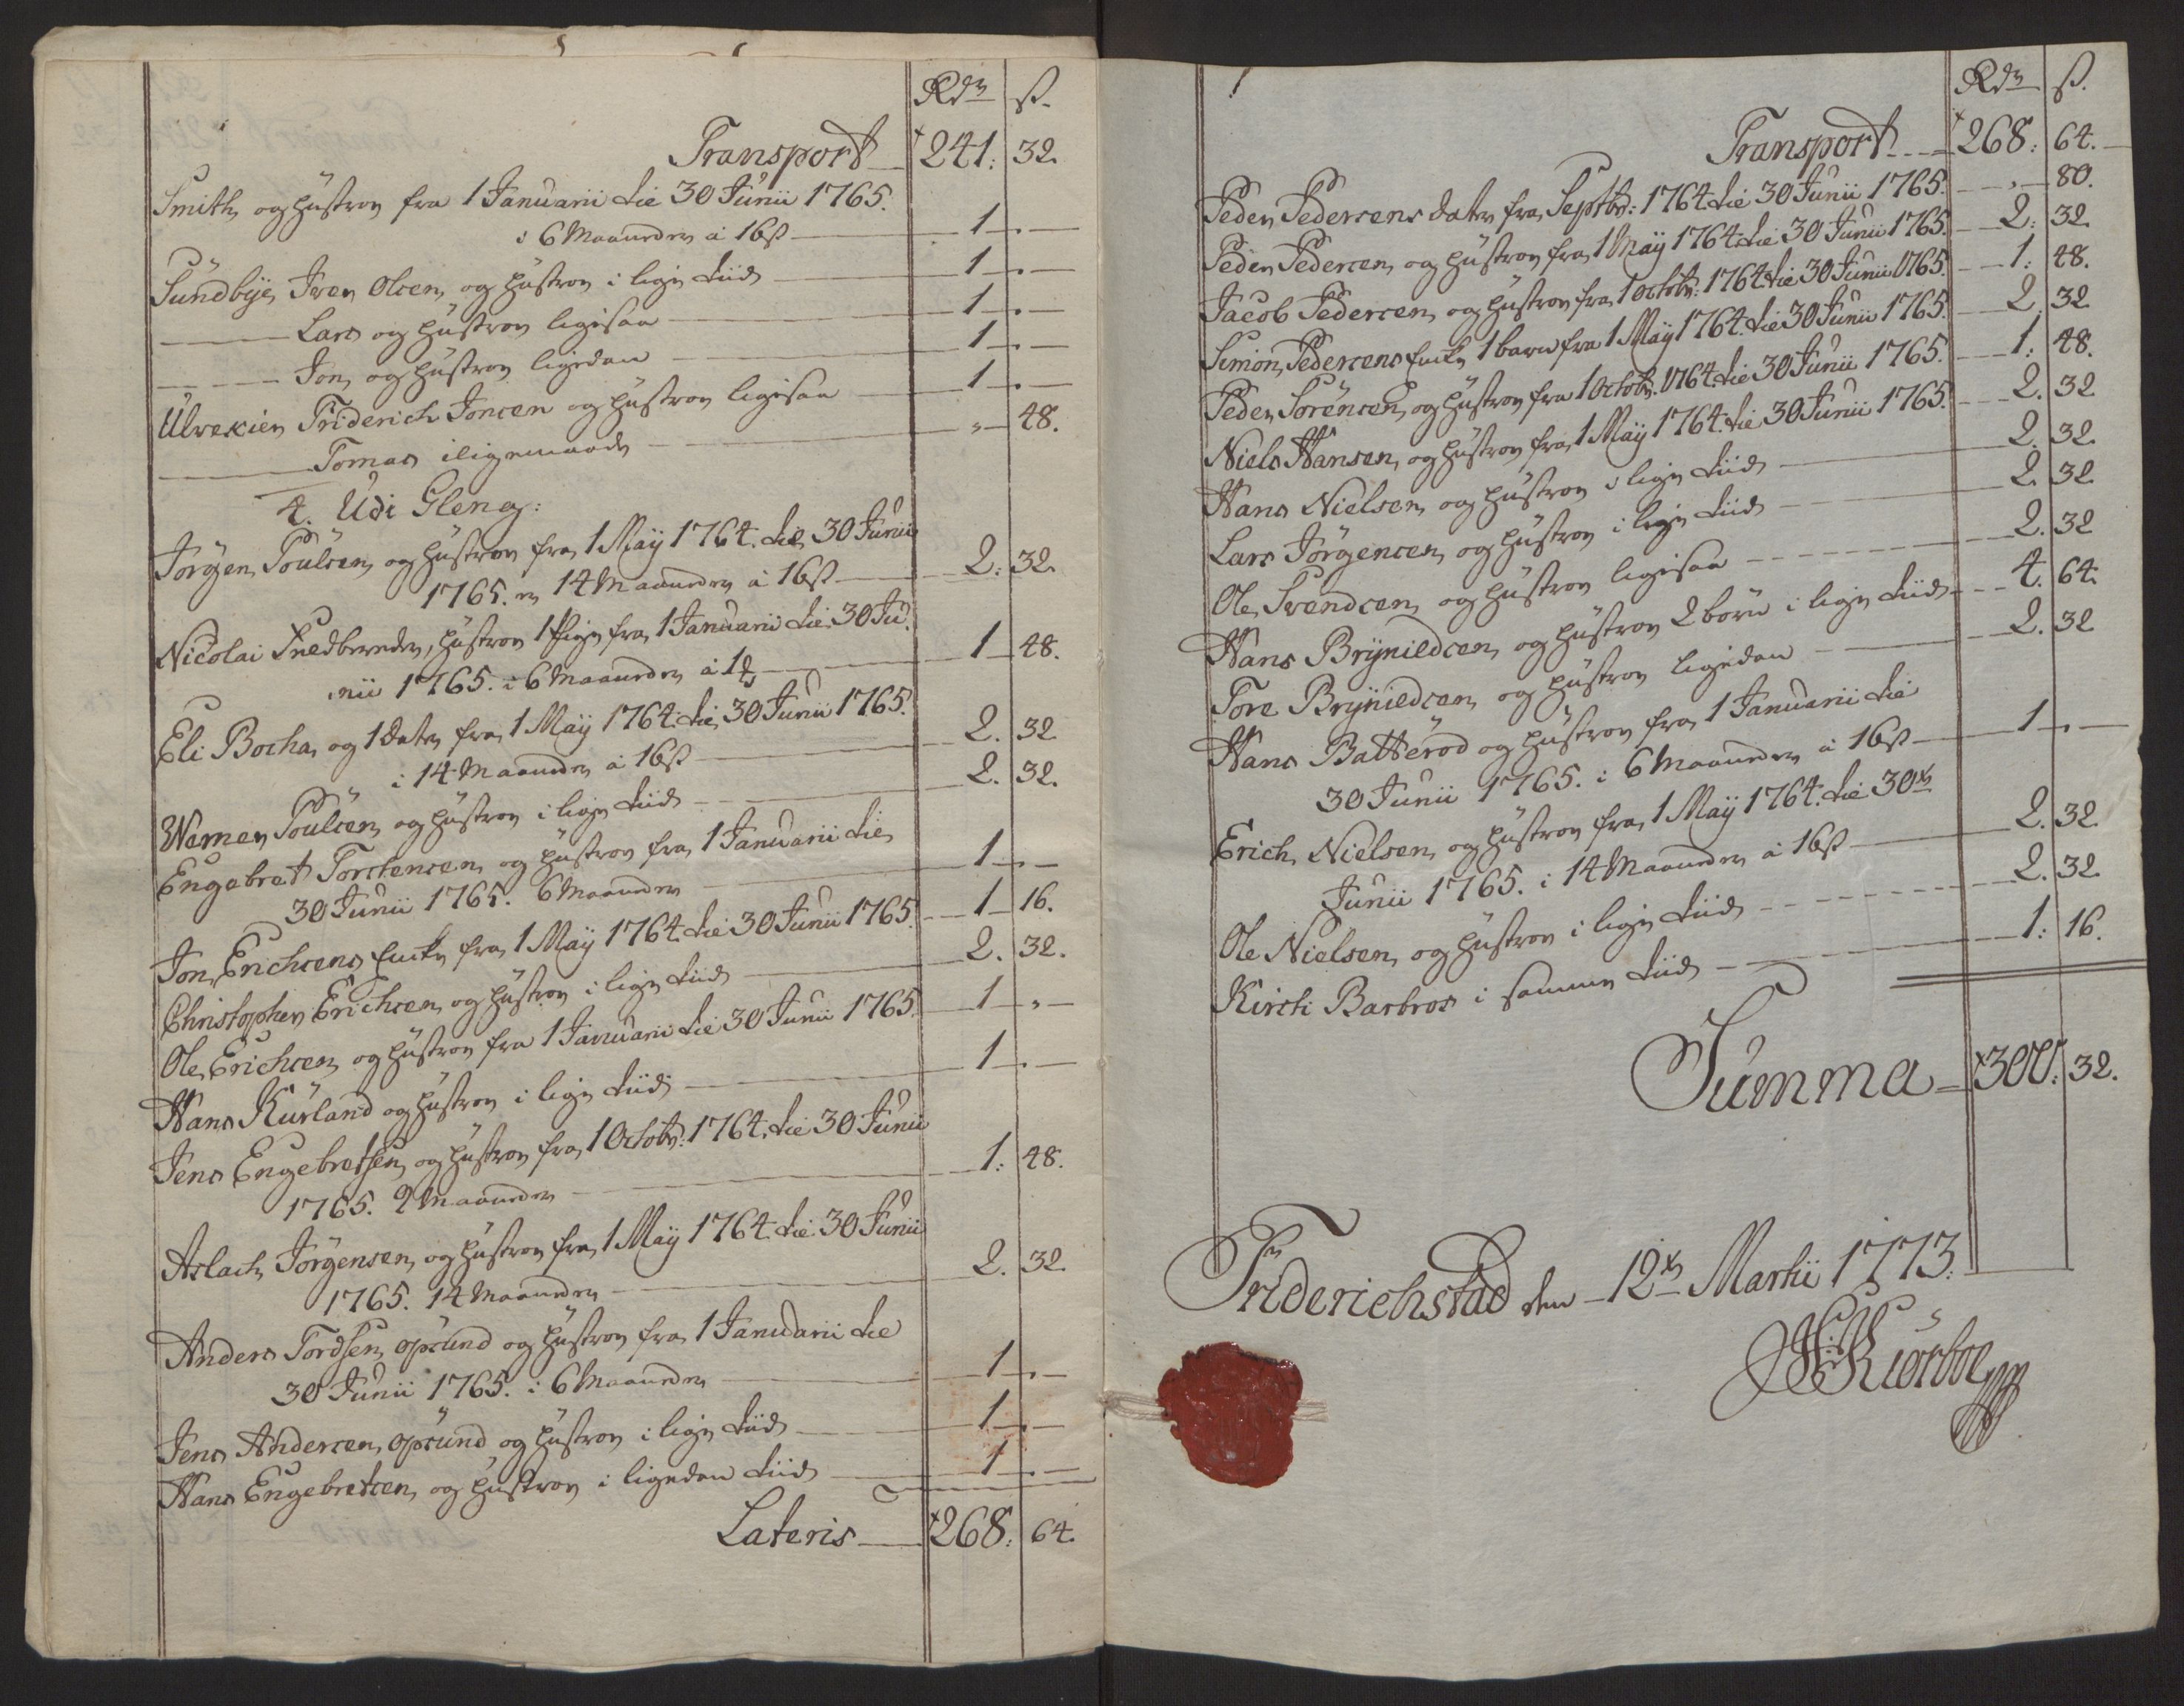 Rdr ß.
Transport 241: 32.
Smith og hustroe fra 1 Januarii til 30 Junii 1765.
i 6 Maaneder á 16ß 1 . —
Sündbÿe Iver Olsen og hustroe i lige tiid 1 . —
——— Lars og hustroe ligesaa 1 . —
——— Jon og hustroe ligedan 1 . —
Ulvekien Friderich Joncen og hustroe ligesaa 1 . —
——— Tomas i ligemaade " 48.
4. Udi Gleng:
Jörgen Poulsen og hustroe fra 1 Maÿ 1764. til 30 Junii
1765. er 14 Maaneder á 16ß 2: 32.
Nicolai hustroe 1 fra 1 Januarii til 30 Ju-
nii 1765. i 6 Maaneder á 1 1 48.
Eli Bocha og 1 dater fra 1 Maÿ 1764. til 30 Junii 1765.
i 14 Maaneder á 16ß 2. 32
Werner Poulsen og hustroe i lige tiid 2. 32.
Engebret Torstensen og hustroe fra 1 Januarii til
30 Junii 1765. 6 Maaneder 1 . —
Jon Erichsens Enke fra 1 Maÿ 1764. til 30 Junii 1765 1 16.
Christopher Erichsen og hustroe i lige tiid 2. 32.
Ole Erichsen og hustroe fra 1 Januarii til 30 Junii 1765. 1 " —
Hans Kürland og hustroe i lige tiid 1 . —
Jens Engebretsen og hustroe fra 1 Octobr: 1764. til 30 Junii
1765. 9 Maaneder 1: 48.
Aslach Jörgensen og hustroe fra 1 Maÿ 1764. til 30 Junii
1765. 14 Maaneder 2. 32.
Anders Tordsen opsund og hustroe fra 1 Januarii til
30 Junii 1765. i 6 Maaneder 1 . —
Jens Andersen opsund og hustroe i lige tiid 1 . —
Hans Engebretsen og hustroe i ligedan tiid 1 . —
Lateris 268: 64.
Rdr ß.
Transport 268: 64.
Peder Pedersens dater fra Septbr: 1764 til 30 Junii 1765. " 80.
Peder Pedersen og hustroe fra 1 Maÿ 1764. til 30 Junii 1765. 2: 32.
Jacob Pedersen og hustroe fra 1 Octobr: 1764 til 30 Junii 1765. 1: 48.
Simon Pedersens Enke 1 barn fra 1 Maÿ 1764. til 30 Junii 1765. 2 32
Peder Sörensen og hustroe fra 1 Octobr. 1764 til 30 Junii 1765. 1: 48.
Niels Hansen og hustroe fra 1 Maÿ 1764. til 30 Junii 1765. 2. 32
Hans Nielsen og hustroe i lige tiid 2. 32.
Lars Jörgensen og hustroe i lige tiid 2. 32.
Ole Svendsen og hustroe ligesaa 2. 32
Hans Brÿnildsen og hustroe 2 börn i lige tiid 4. 64.
Tore Brÿnildsen og hustroe ligedan 2. 32
Hans Batteröd og hustroe fra 1 Januarii til
30 Junii 1765. i 6 Maaneder á 16ß 1 . —
Erich Nielsen og hustroe fra 1 Maÿ 1764. til 30te
Junii 1765. i 14 Maaneder á 16ß 2. 32.
Ole Nielsen og hustroe i lige tiid 2. 32.
Kirsti Barbros i samme tiid 1: 16.
Summa 300: 32.
Friderichstad den 12te Martii 1773.
Kiörboe